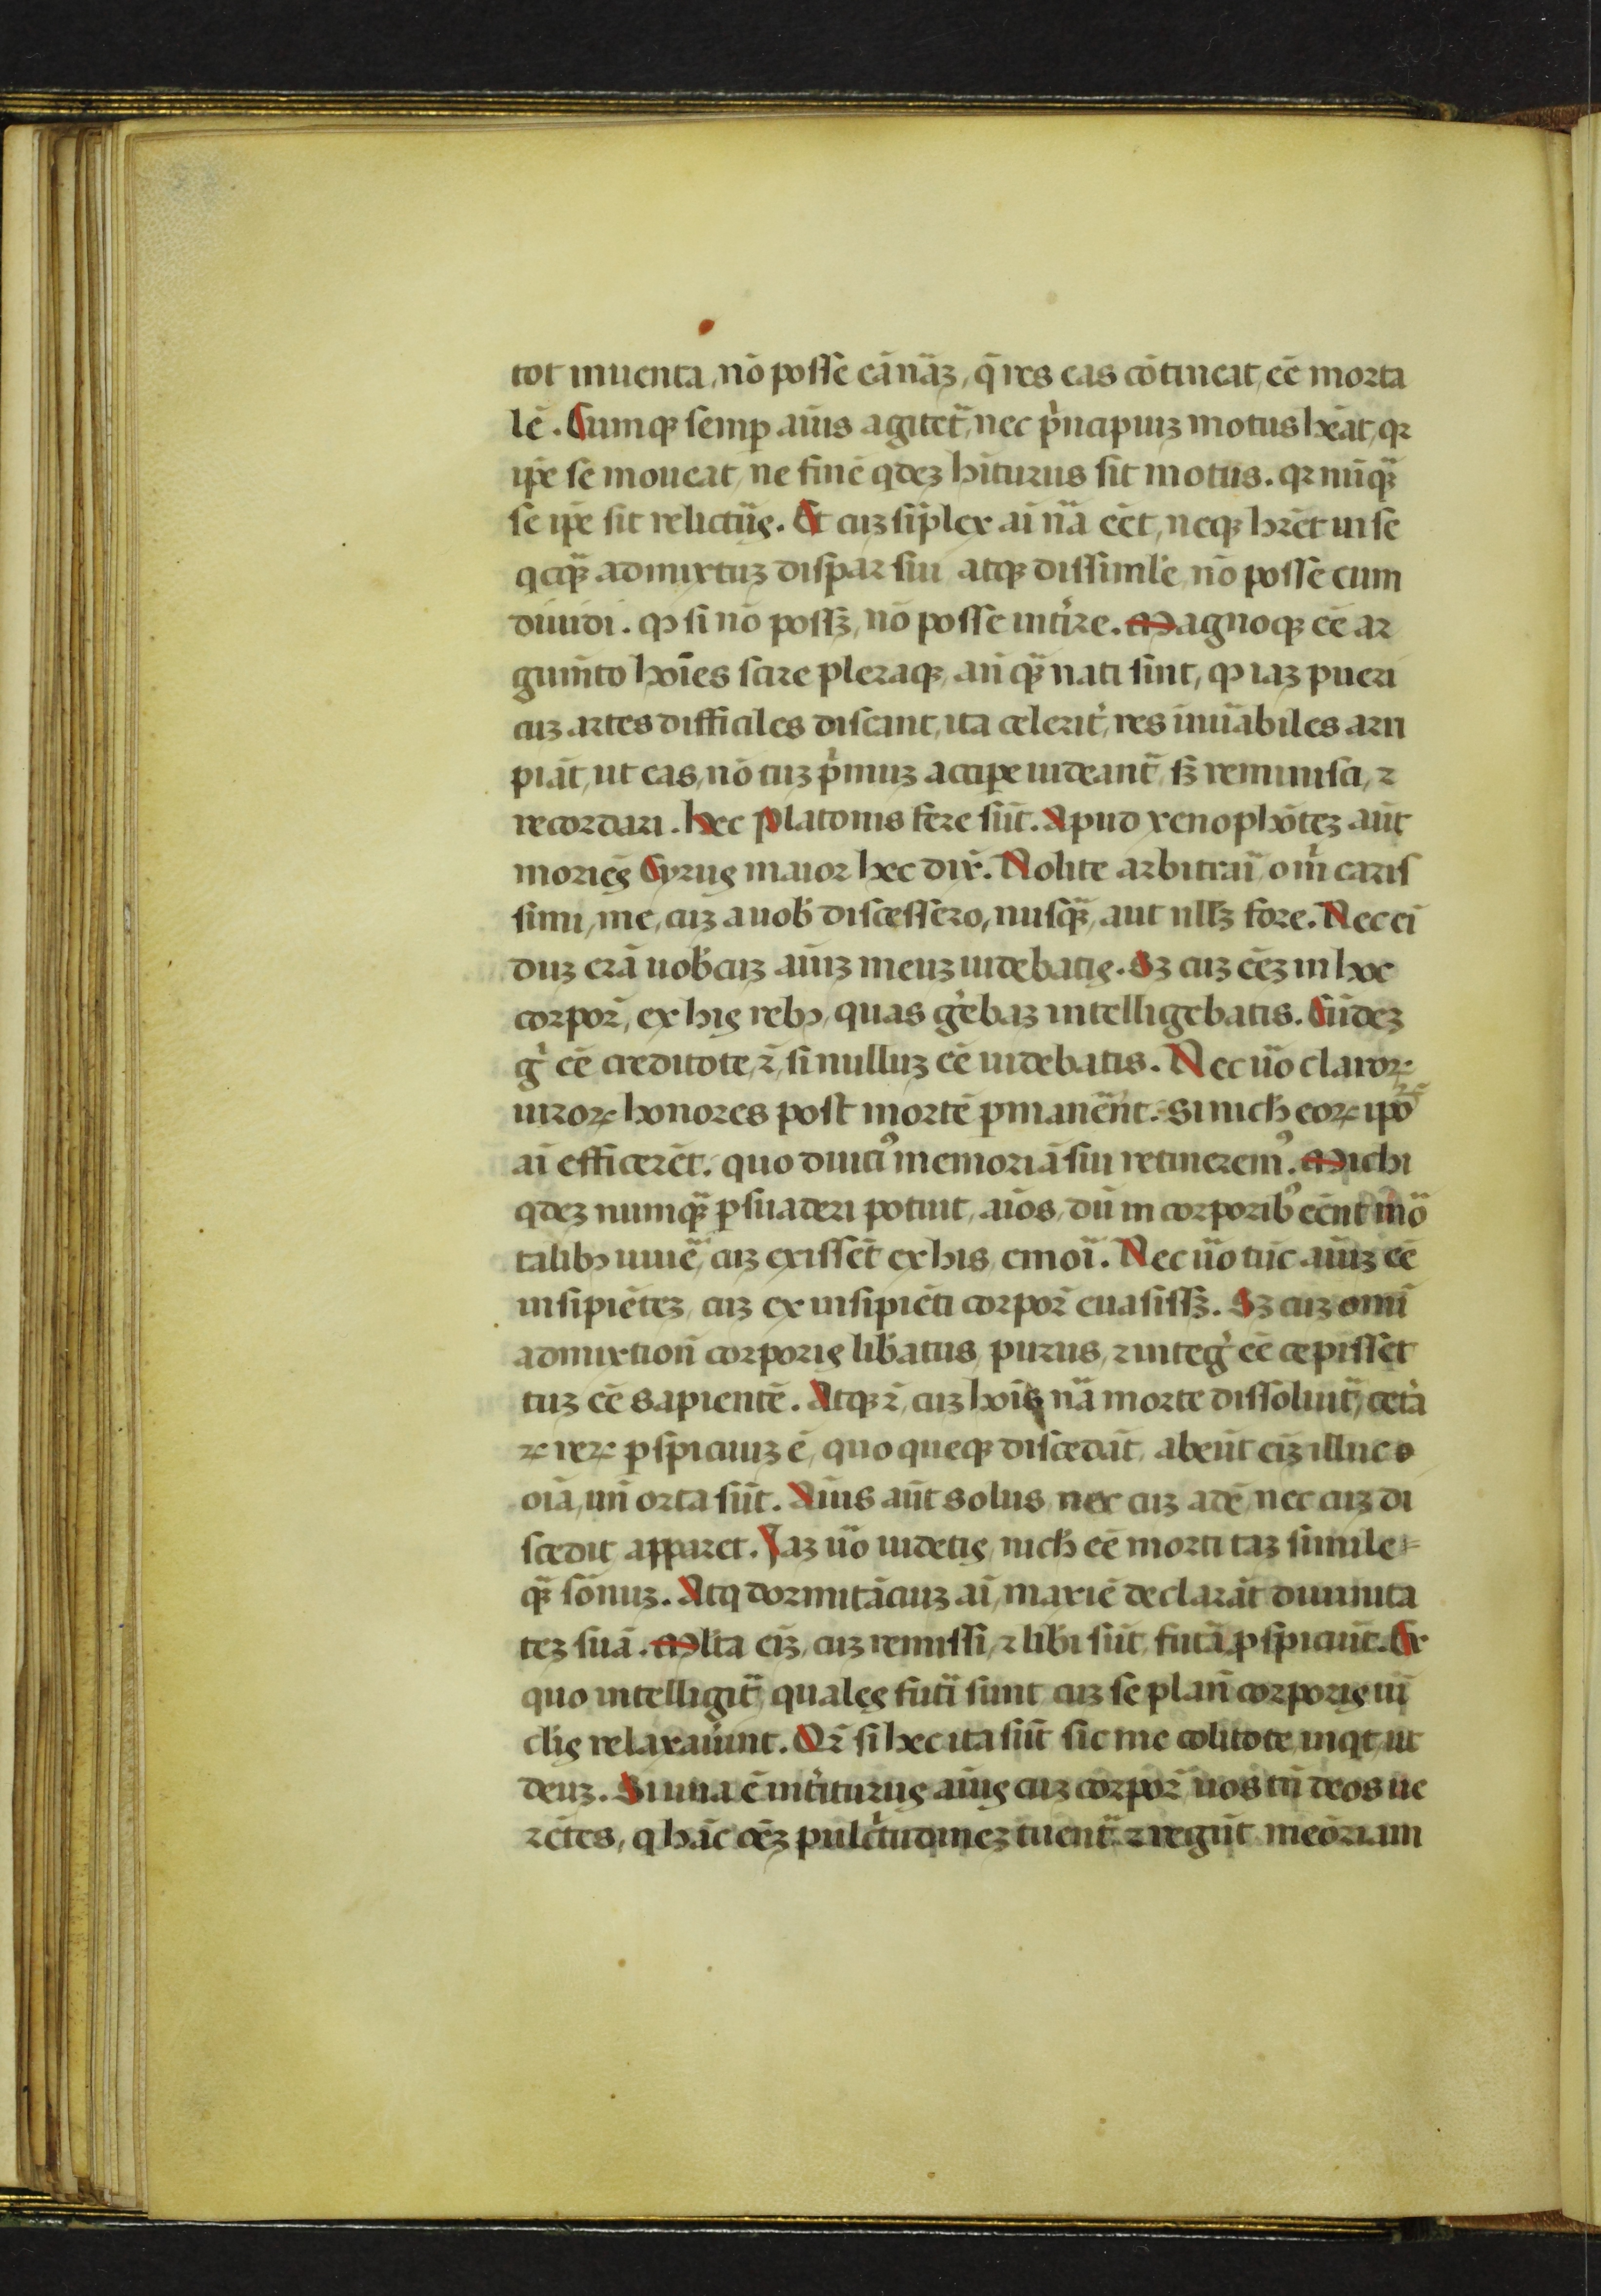 tot inuenta, nō posse eā nāꝫ, q̄ res eas cōtineat, eē morta
lē. Cumqꝫ semꝑ aīus agitet̄, nec pͥncipiuꝫ motus hēat, qꝛ
ip̄e se moueat, ne finē qdeꝫ hīturus sit motus. qꝛ nūqꝫ̄
se ip̄e sit relictuꝰ. Et cuꝫ sīplex aī nā eēt, neqꝫ hr̄et in se
qcqꝫ̄ admixtuꝫ dispar sui atqꝫ dissimile, nō posse eum
diuidi. ꝙ si nō possꝫ, nō posse intͥire. Magnoqꝫ eē ar
gum̄to hoīes scire pleraqꝫ, an̄ qꝫ̄ nati sint, ꝙ iaꝫ pueri
cuꝫ artes difficiles discant, ita celerit̓, res īnūabiles arri
piāt, ut eas, nō tuꝫ pͥmuꝫ accipe uideant̄, sꝫ reminisci, ⁊
recordari. Hec Platonis fere sūt. Apud xenophōteꝫ aūt
moriēs Cyrus maior hec dix̄. Nolite arbitrarī, o m̄i caris
simi, me, cuꝫ a uob̄ discessero, nusqꝫ̄, aut nllꝫ fore. Nec eī
duꝫ erā uob̄cuꝫ aīuꝫ meuꝫ uidebatis. Sꝫ cuꝫ eēꝫ in hoc
corpor̄, ex his rebꝫ, quas g̓ebaꝫ intelligebatis. Eūdeꝫ
g̓ eē creditote, ⁊̄, si nulluꝫ eē uidebatis. Nec ūo claroꝝ
uiroꝝ honores post mortē ꝑmanēnt. Si nich̄ eoꝝ ip̄oꝝ
aī efficerēt. quo diuti᾽ memoriā sui retinerem᾽. Michi
qdeꝫ numqꝫ̄ ꝑsuaderi potuit, aīos, dū in corporib᾽ eēnt mō
talibꝫ uiuē, cuꝫ exissēt ex his, emoī. Nec ūo tūc aīuꝫ eē
insipiēteꝫ, cuꝫ ex insipiēti corpor̄ euasissꝫ. Sꝫ cuꝫ omī
admixtion̄ corporis lib̄atus, purus, ⁊ integ̓ eē cepisset
tuꝫ eē sapientē. Atqꝫ ⁊̄, cuꝫ hoīs nā morte dissoluit̄, cet̓a
ꝝ reꝝ ꝑspicuuꝫ ē, quo queqꝫ discedāt, abeūt eīꝫ illuc o
oīa, un̄ orta sūt. Aīus aūt solus, nec cuꝫ adē, nec cuꝫ di
scedit apparet. Iaꝫ ūo uidetis, nich̄ eē morti taꝫ simile
qꝫ̄ sōnuꝫ. Atq dormitāciuꝫ aī, maxīe declarāt diuinita
teꝫ suā. Mlta eīꝫ, cuꝫ remissi, ⁊ lib̄i sūt, futā ꝑspiciūt. Ex
quo intelligit̄, quales futī sunt cuꝫ se plan̄ corporis uī
clis relaxau̓int. Qr̄ si hec ita sūt sic me colitote, inqt, ut
deuꝫ. Si una ē intͥiturus aīus cuꝫ corpor̄ uos tn̄ deos ue
rētes, q hāc oēꝫ pulcͥtudineꝫ tuent̄ ⁊ regūt meōriam